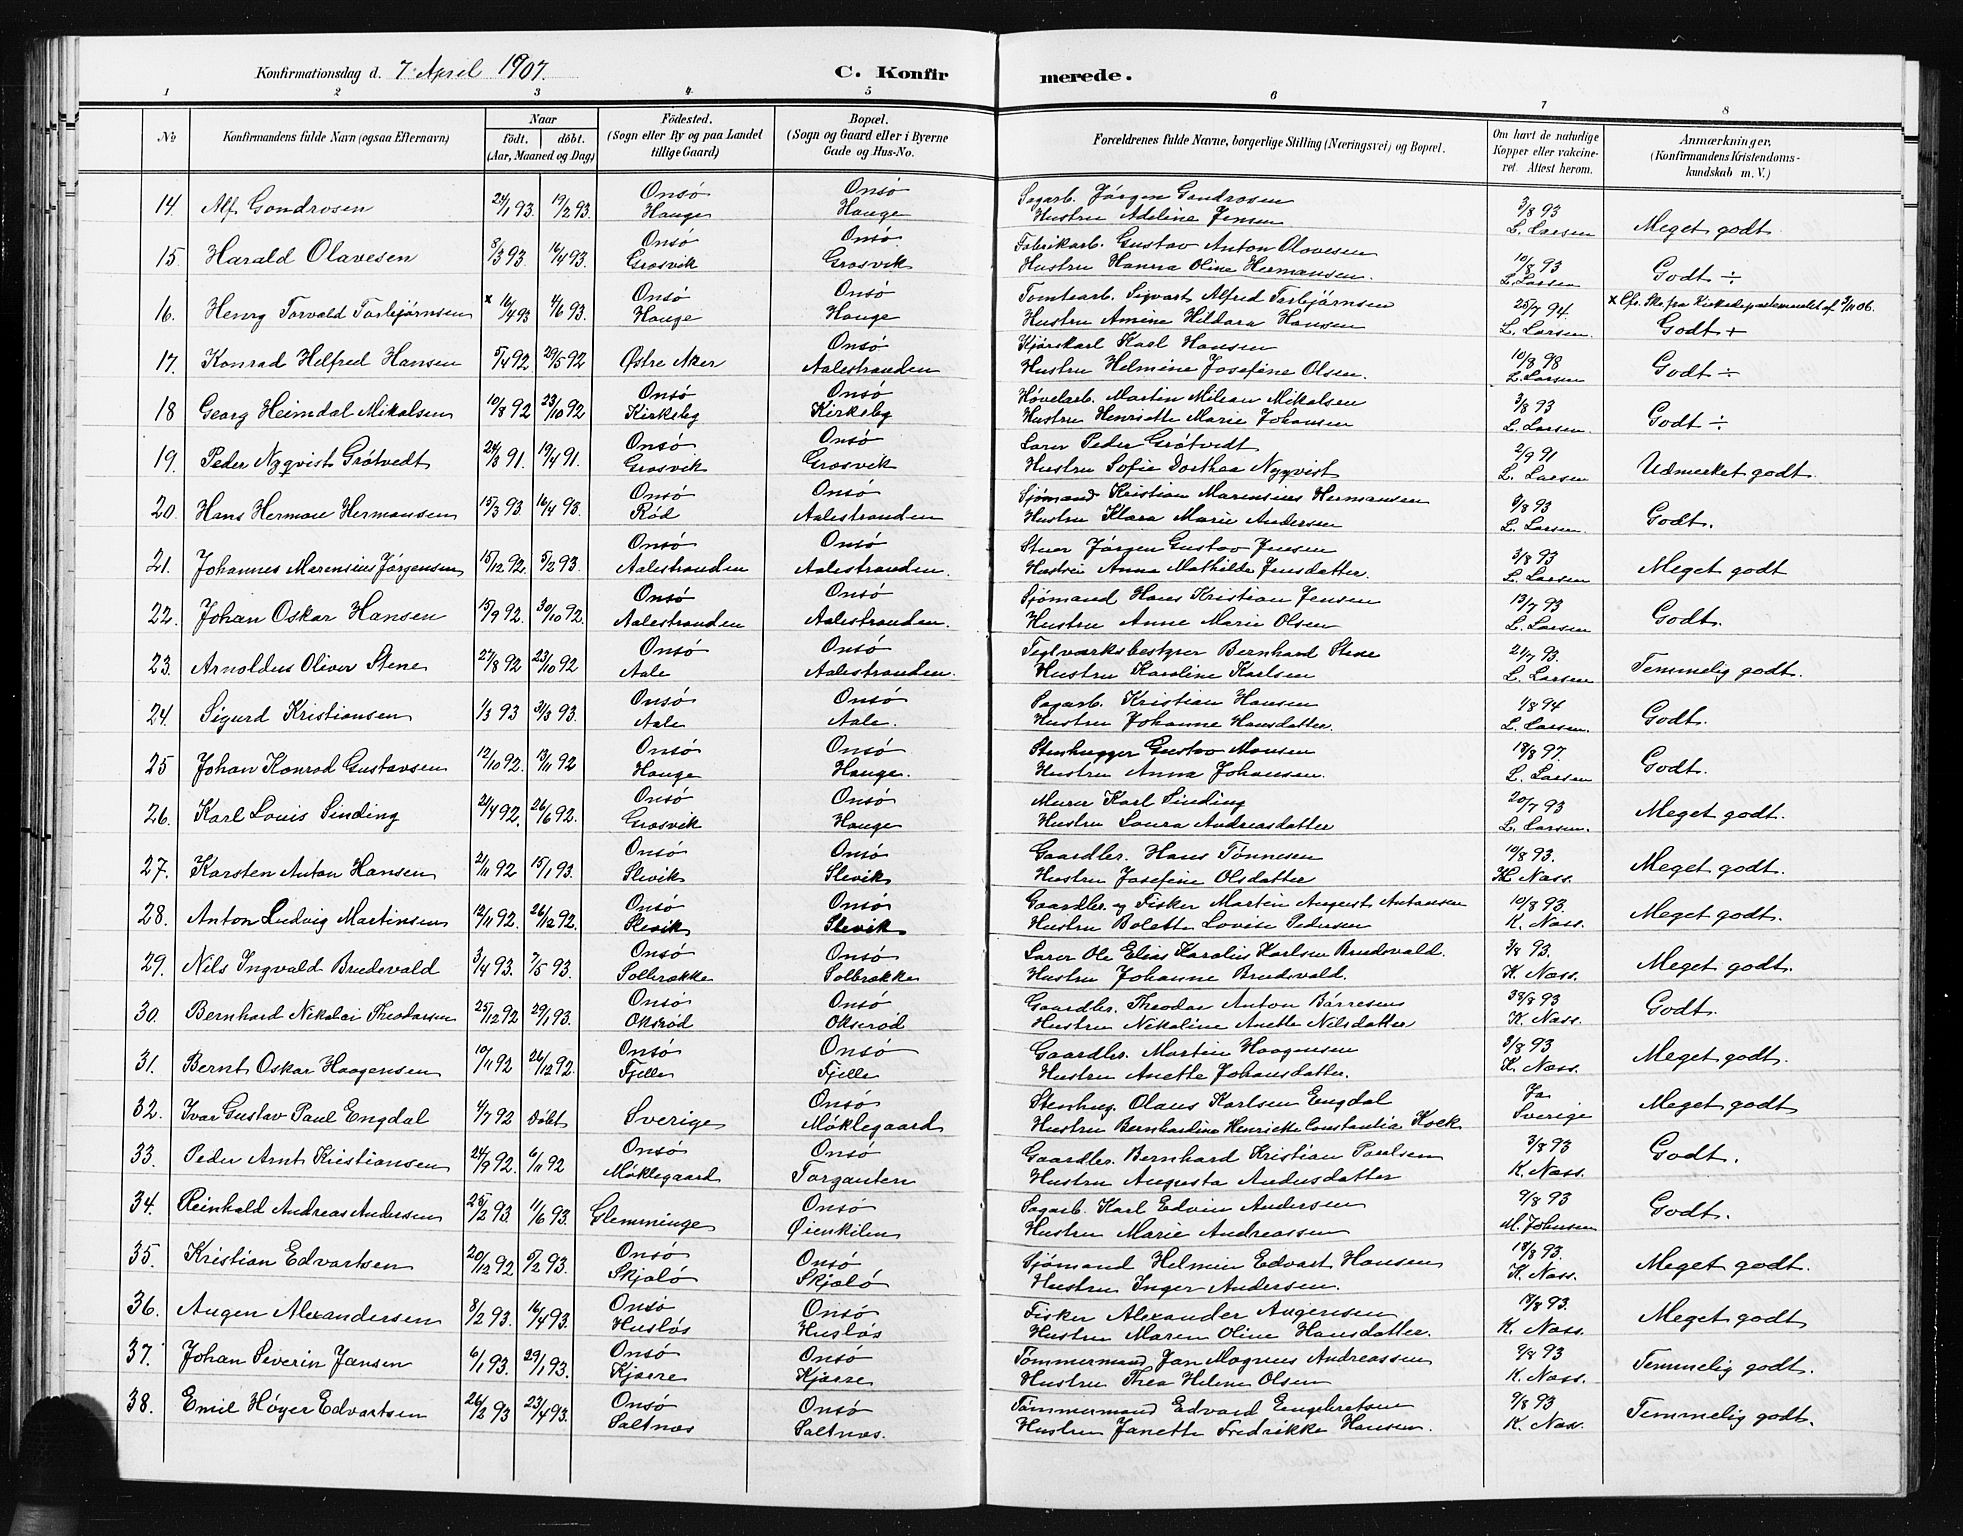 Konfirmationsdag d. 7. April 1907. C. Konfirmerede.
1 2 3 4 5 6 7 8
No Konfirmandens fulde Navn (ogsaa Efternavn) Naar født, døbt. (Aar, Maaned og Dag) Födested. (Sogn eller By og paa Landet tillige Gaard) Bopæl. (Sogn og Gaard eller i Byerne Gade og Hus-No. Forældrenes fulde Navne, borgerlige Stilling (Næringsvei) og Bopæl. Om havt de naturlige Kopper eller vakcineret. Attest herom. Anmærkninger. (Konfirmandens Kristendomskundskab m. V.)
14. Alf Gondrosen 19/2 93. Onsö Hauge Onsö Hauge Sagarb. Jörgen Gondrosen Hustru Adeline Jensen 3/8 93 L. Larsen Meget godt.
15. Harald Olavesen 8/3 93 16/4 93. Onsö Grosvik Onsö Grosvik Fabrikarb. Gustav Anton Olavesen Hustru Hanna Oline Hermansen. 10/8 93 L. Larsen Godt ÷
16. Henry Torvald Torbjörnsen x 16/4 93 4/6 93. Onsö Hauge Onsö Hauge Tomtearb. Sigvart Alfred Torbjörnsen Hustru Amine Hildara Hansen 25/7 94. L. Larsen x Cfr. Skr. fra Kirkedepartementet af 06. Godt +
17. Konrad Helfred Hansen 5/4 92 29/5 92 Østre Aker Onsö Aalestranden Kjörskarl Karl Hansen Hustru Helmine Josefine Olsen. 10/8 98 L. Larsen Godt ÷
18 Georg Heimdal Mikalsen 10/8 92 23/10 92. Onsö Kirkeby Onsö Kirkeby Hövelarb. Martin Milian Mikalsen Hustru Henriette Marie Johansen 3/8 93 L. Larsen Godt ÷
19. Peder Nyqvist Grötvedt 24/3 91. 19/4 91. Onsö Grosvik Onsö Grosvik Lærer Peder Grötvedt Hustru Sofie Dorthea Nyqvist 2/9 91 L. Larsen Udmerket godt
20. Hans Herman Hermansen 15/3 93 16/4 93. Onsö Rød Onsö Aalestranden Sjömand Kristian Marensius Hermansen Hustru Klara Marie Andersen 3/8 93 L. Larsen Godt.
21. Johannes Marensius Jörgensen 15/12 92. 5/2 93. Onsö Aalestranden Onsö Aalestranden. Stuer Jörgen Gustav Jensen Hustru Anna Mathilde Jensdatter. 3/8 93 L. Larsen Meget godt
22. Johan Oskar Hansen 15/9 92. 30/10 92. Onsö Aalestranden Onsö Aalestranden. Sjömand Hans Kristian Jensen Hustru Anne Marie Olsen 13/7 93 L. Larsen Godt.
23. Arnoldus Oliver Stene 27/8 92 23/10 92 Onsö Aale Onsö Aalestranden. Teglværksbestyrer Bernhard Stene Hustru Karoline Karlsen 21/7 93. L. Larsen Temmelig godt.
24. Sigurd Kristiansen 1/3 93 31/3 93. Onsö Aale Onsö Aale. Sagarb. Kristian Hansen Hustru Johanne Hansdatter 1/8 94 L. Larsen Godt.
25 Johan Konrad Gustavsen 12/10 92. 13/11 92 Onsö Hauge Onsö Hauge. Stenhugger Gustav Monsen Hustru Anna Johansen. 18/8 97. L. Larsen Godt.
26. Karl Louis Sinding 21/4 92. 26/6 92. Onsö Grosvik Onsö Hauge Murer Karl Sinding Hustru Laura Andreasdatter 20/7 93 L. Larsen. Meget godt.
27. Karsten Anton Hansen 21/11 92 15/1 93. Onsö Slevik Onsö Slevik Gaardbr. Hans Tönnesen Hustru Josefine Olsdatter 10/8 93. K Næss. Meget godt.
28. Anton Ludvig Martinsen 12/11 92. 26/12 92. Onsö Slevik Onsö Slevik Gaardbr. og Fisker Martin August Antonsen Hustru Bolette Lovise Pedersen 10/8 93. K. Næss. Meget godt.
29. Nils Ingvald Brudevald 3/4 93. 7/5 93. Onsö Solbrække Onsö Solbrække Lærer Ole Elias Karolius Karlsen Brudevald. Hustru Johanne Brudevald. 3/8 93. K. Næss. Meget godt.
30. Bernhard Nikolai Theodorsen 25/12 92 29/1 93. Onsö Oksrød Onsö Oksrod Gaardbr. Theodor Anton Börresen Hustru Nikoline Anette Nilsdatter 93 K. Næss. Godt.
31. Bernt Oskar Haagensen 10/11 92 26/12 92. Onsö Fjelle Onsö Fjelle Gaardbr. Martin Haagensen Hustru Anette Johansdatter. 3/8 93 K. Næss. Meget godt.
32. Ivar Gustav Paul Engdal 4/7 92 Döbt Sverige Onsö Møklegaard Stenhug. Olaus Karlsen Engdal Hustru Bernhardine Henriette Constantia Kock Ja Sverige Meget godt
33. Peder Arnt Kristiansen 24/9 92. 6/11 92 Onsö Møklegaard Onsö Torgauten Gaardbr. Bernhard Kristian Paulsen Hustru Augusta Andersdatter 3/8 93 K. Næss. Godt.
34. Reinhold Andreas Andersen 25/2 93. 11/6 93. Glemminge Onsö Øienkilen Sagarb. Karl Edvin Andersen Hustru Marie Andreassen 9/8 93 M. Johnsen Godt.
35. Kristian Edvartsen 20/12 92 5/2 93. Onsö Skjælö Onsö Skjælö Sjömand Helmin Edvart Hansen Hustru Inger Andersen. 18/8 93. K. Næss. Meget godt.
36. Augen Alexandersen 8/2 93. 16/4 93. Onsö Husløs Onsö Husløs Fisker Alexander Augensen Hustru Maren Oline Hansdatter. 18/8 93. K. Næss. Meget godt
37. Johan Severin Jansen 6/1 93. 29/1 93. Onsö Kjærre Onsö Kjærre Tömmermand Jan Magnus Andreassen Hustru Thea Helene Olsen 9/8 93 K. Næss. Temmelig godt.
38. Emil Höyer Edvartsen 26/2 93 23/4 93. Onsö Saltnæs Onsö Saltnæs. Tömmermand Edvard Engebretsen Hustru Janette Fredrikke Hansen. 9/8 93 K. Næss. Temmelig godt.